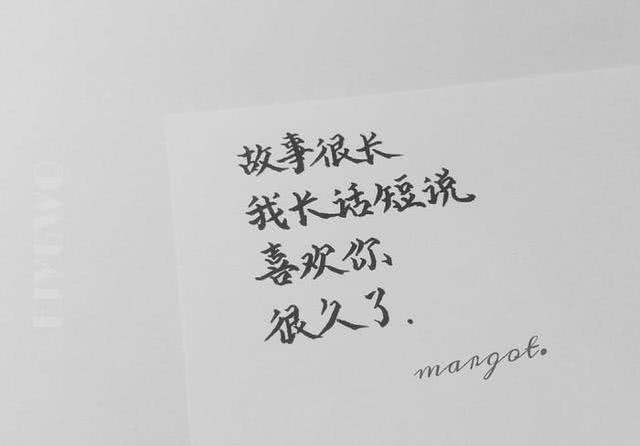 故事很长
我长话短说
喜欢你
很久了.
margot.